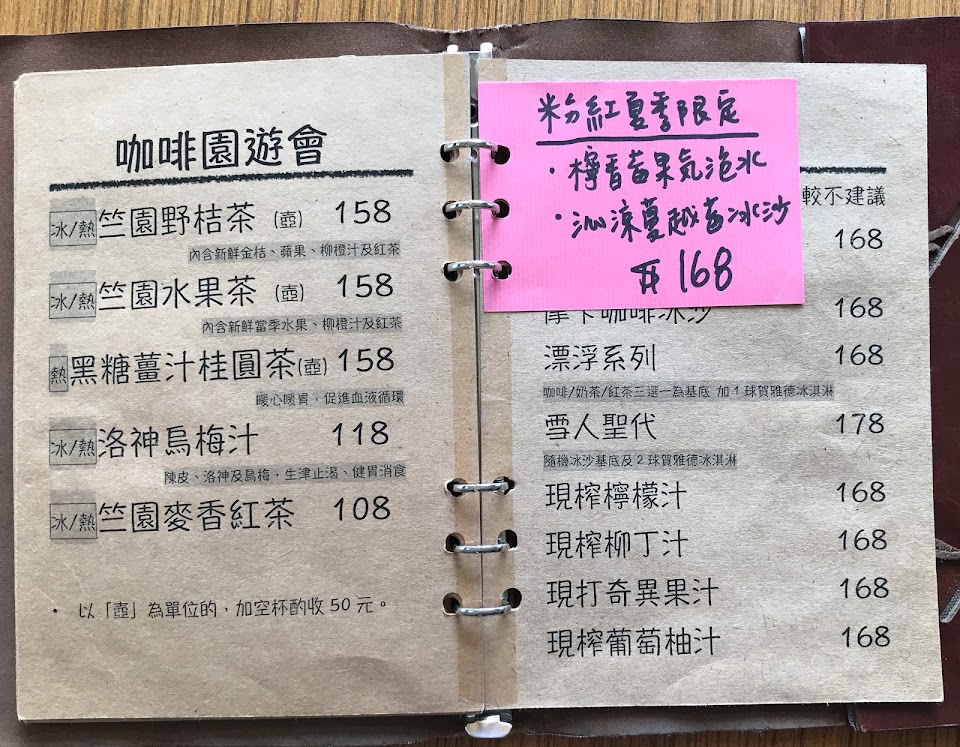 咖啡園遊會
冰/熱 竺園野桔茶 (壺) 158
內含新鮮金桔、蘋果、柳橙汁及紅茶
冰/熱 竺園水果茶 (壺) 158
內含新鮮當季水果、柳橙汁及紅茶
熱 黑糖薑汁桂圓茶(壺) 158
暖心暖胃，促進血液循環
冰/熱 洛神烏梅汁 118
陳皮、洛神及烏梅，生津止渴、健胃消食
冰/熱 竺園麥香紅茶 108
• 以「壺」為單位的，加空杯酌收 50 元。
粉紅夏季限定
·檸香莓果氣泡水
·沁涼蔓越莓冰沙
168
較不建議
168
摩卡咖啡冰沙 168
漂浮系列 168
咖啡/奶茶/紅茶三選一為基底 加 1 球賀雅德冰淇淋
雪人聖代 178
隨機冰沙基底及 2 球賀雅德冰淇淋
現榨檸檬汁 168
現榨柳丁汁 168
現打奇異果汁 168
現榨葡萄柚汁 168